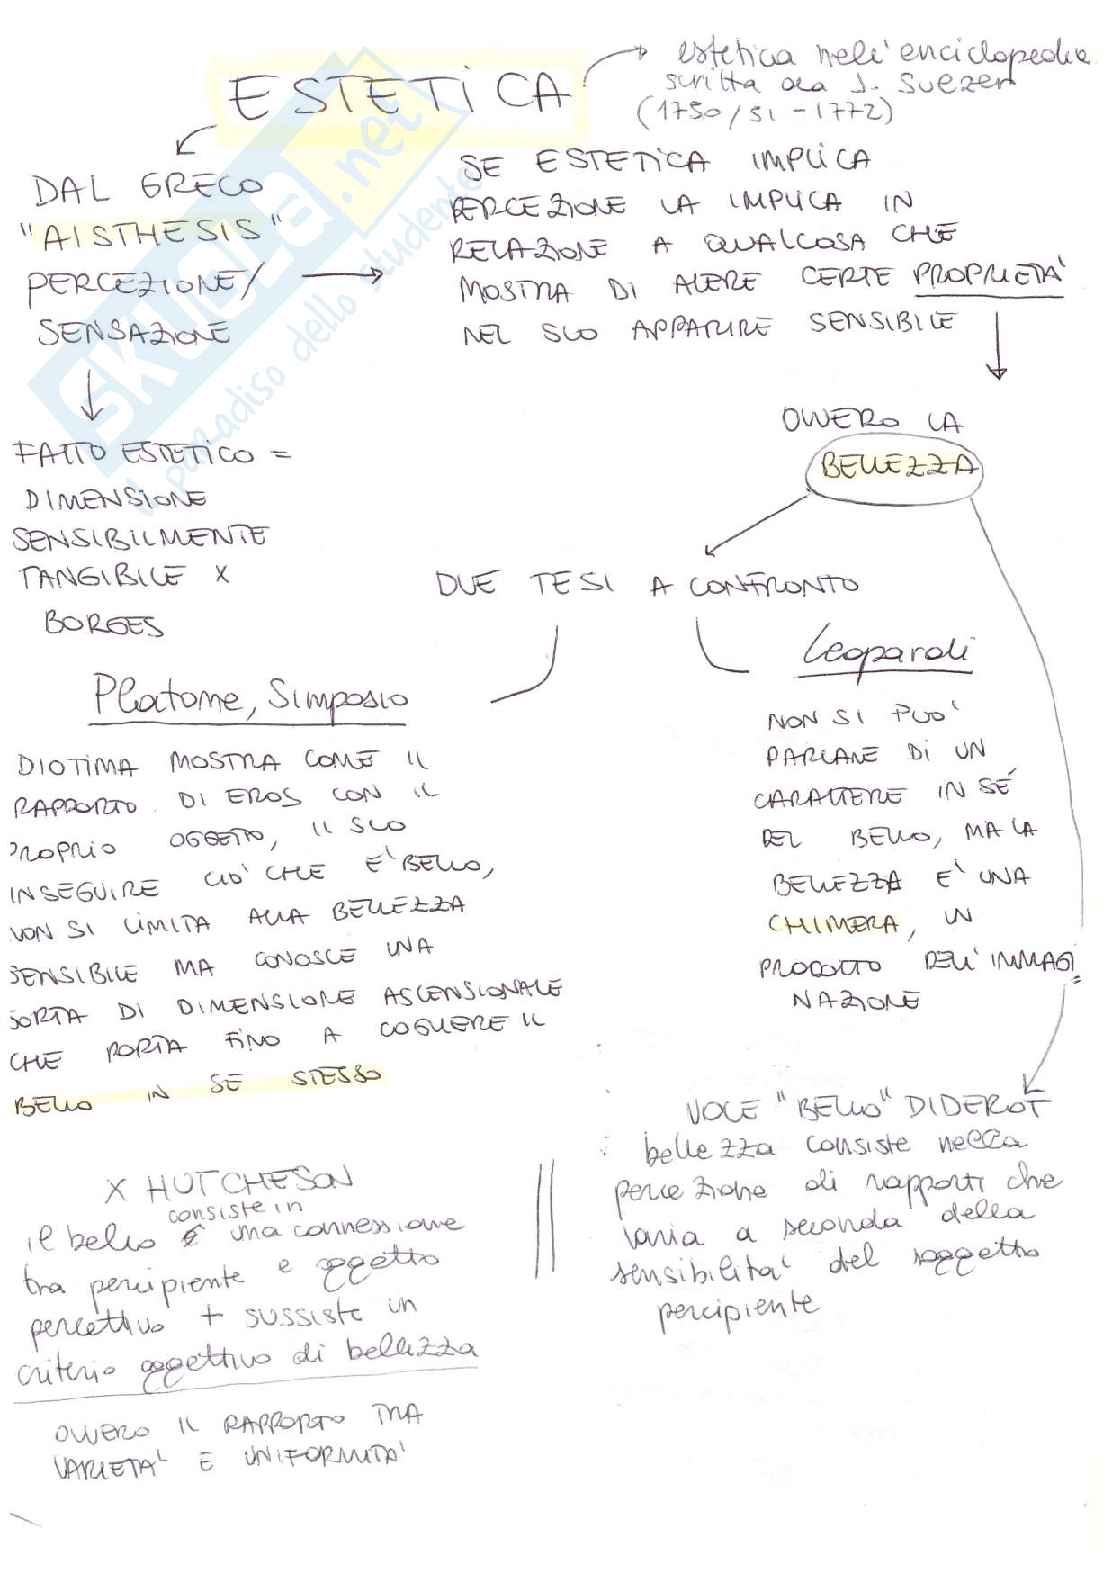 ESTETICA
estetica nell'enciclopedia
scritta da J. Suezer
(1750/51-1772)
DAL GRECO
"AISTHESIS"
PERCEZIONE/
SENSAZIONE
SE ESTETICA IMPLICA
PERCEZIONE LA IMPLICA IN
RELAZIONE A QUALCOSA CHE
MOSTRA DI AVERE CERTE PROPRIETA'
NEL SUO APPARIRE SENSIBILE
OVVERO LA
BELLEZZA
FATTO ESTETICO =
DIMENSIONE
SENSIBILMENTE
TANGIBILE X
BORGES
DUE TESI A CONFRONTO
Platone, Simposio
DIOTIMA MOSTRA COME IL
RAPPORTO DI EROS CON IL
PROPRIO OGGETTO, IL SUO
INSEGUIRE CIO' CHE E' BELLO,
NON SI LIMITA ALLA BELLEZZA
SENSIBILE MA CONOSCE UNA
SORTA DI DIMENSIONE ASCENSIONALE
CHE PORTA FINO A COGLIERE IL
BELLO IN SE STESSO
Leopardi
NON SI PUO'
PARLARE DI UN
CARATTERE IN SÉ
DEL BELLO, MA LA
BELLEZZA E' UNA
CHIMERA, UN
PRODOTTO DELL'IMMAGI
NAZIONE
VOCE "BELLO" DIDEROT
bellezza consiste nella
percezione di rapporti che
varia a seconda della
sensibilita' del soggetto
percipiente
X HUTCHESON
consiste in
il bello è una connessione
tra percipiente e oggetto
percettivo + sussiste un
criterio oggettivo di bellezza
OVVERO IL RAPPORTO TRA
VARIETA' E UNIFORMITA'
SKUOLA.net
il paradiso dello studente